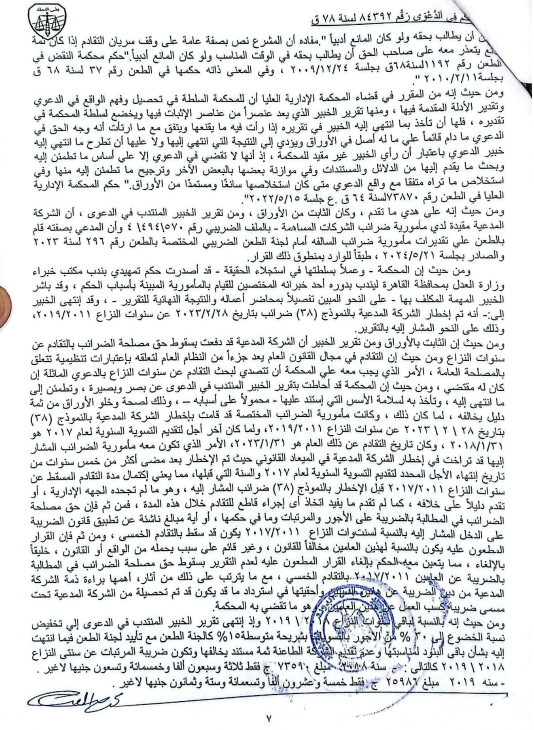 في الدعوى رقم ٨٤٣٩٢ لسنة ٧٨ ق
أن يطالب بحقه ولو كان المانع أدبياً ".مفاده أن المشرع نص بصفة عامة على وقف سريان التقادم إذا كان ثمة
يتعذر معه على صاحب الحق أن يطالب بحقه في الوقت المناسب ولو كان المانع أدبياً."حكم محكمة النقض في
الطعن رقم ١١٩٢لسنة٦٨ق بجلسة ٢٠٠٩/١٢/٢٤ ، وفي المعنى ذاته حكمها في الطعن رقم ٣٧ لسنة ٦٨ ق
بجلسة ٢٠١٠/٢/١١ ".
ومن حيث إنه من المقرر في قضاء المحكمة الإدارية العليا أن للمحكمة السلطة في تحصيل وفهم الواقع في الدعوي
وتقدير الأدلة المقدمة فيها، ومنها تقرير الخبير الذي يعد عنصراً من عناصر الإثبات فيها ويخضع لسلطة المحكمة في
تقديره ، فلها أن تأخذ بما انتهى إليه الخبير في تقريره إذا رأت فيه ما يقنعها ويتفق مع ما ارتأت أنه وجه الحق في
الدعوي ما دام قائماً علي ما له أصل في الأوراق ويؤدي إلي النتيجة التي انتهي إليها ولا عليها أن تطرح ما انتهي إليه
خبير الدعوي باعتبار أن رأي الخبير غير مقيد للمحكمة ، إذ أنها لا تقضي في الدعوي إلا علي أساس ما تطمئن إليه
وبحث ما يقدم إليها من الدلائل والمستندات وفي موازنة بعضها بالبعض الآخر وترجيح ما تطمئن إليه منها وفي
استخلاص ما تراه متفقا مع واقع الدعوي متي كان استخلاصها سائغًا ومستمدًا من الأوراق." حكم المحكمة الإدارية
العليا في الطعن رقم ٧٣٨٧٠لسنة ٦٤ ق .ع جلسة ٢٠٢٢/٥/١٥".
ومن حيث إنه على هدي ما تقدم ، وكان الثابت من الأوراق ، ومن تقرير الخبير المنتدب في الدعوى ، أن الشركة
المدعية مقيدة لدي مأمورية ضرائب الشركات المساهمة - بالملف الضريبي رقم وأن المدعي بصفته قام
بالطعن علي تقديرات مأمورية ضرائب السالفه أمام لجنة الطعن الضريبي المختصة بالطعن رقم ٢٩٦ لسنة ٢٠٢٣
والصادر بجلسة ٢٠٢٤/٥/٢١ ، طبقاً للوارد بمنطوق ذلك القرار .
ومن حيث إن المحكمة - وعملاً بسلطتها في استجلاء الحقيقة - قد أصدرت حكم تمهيدي بندب مكتب خبراء
وزارة العدل بمحافظة القاهرة ليندب بدوره أحد خبرائه المختصين للقيام بالمأمورية المبينة بأسباب الحكم ، وقد باشر
الخبير المهمة المكلف بها - على النحو المبين تفصيلاً بمحاضر أعماله والنتيجة النهائية للتقرير - ، وقد إنتهى الخبير
إلى:- أنه تم إخطار الشركة المدعية بالنموذج (٣٨) ضرائب بتاريخ ٢٠٢٣/٢/٢٨ عن سنوات النزاع ٢٠١٩/٢٠١١،
وذلك على النحو المشار إليه بالتقرير.
ومن حيث إن الثابت بالأوراق ومن تقرير الخبير أن الشركة المدعية قد دفعت بسقوط حق مصلحة الضرائب بالتقادم عن
سنوات النزاع ومن حيث إن التقادم في مجال القانون العام يعد جزءاً من النظام العام لتعلقه بإعتبارات تنظيمية تتعلق
بالمصلحة العامة ، الأمر الذي يجب معه علي المحكمة أن تتصدي لبحث التقادم عن سنوات النزاع بالدعوي الماثلة إن
كان له مقتضي ، ومن حيث إن المحكمة قد أحاطت بتقرير الخبير المنتدب في الدعوى عن بصر وبصيرة ، وتطمئن إلى
ما انتهى إليه ، وتأخذ به لسلامة الأسس التي إستند عليها - محمولاً على أسبابه – ، وذلك لصحة وخلو الأوراق من ثمة
دليل يخالفه ، لما كان ذلك ، وكانت مأمورية الضرائب المختصة قد قامت بإخطار الشركة المدعية بالنموذج (٣٨)
بتاريخ ٢٨ \ ٢ \ ٢٠٢٣ عن سنوات النزاع ٢٠١٩/٢٠١١، ولما كان آخر أجل لتقديم التسوية السنوية لعام ٢٠١٧ هو
٢٠١٨/١/٣١ ، وكان تاريخ التقادم عن ذلك العام هو ٢٠٢٣/١/٣١، الأمر الذي تكون معه مأمورية الضرائب المشار
إليها قد تراخت في إخطار الشركة المدعية في الميعاد القانوني حيث تم الإخطار بعد مضى أكثر من خمس سنوات من
تاريخ إنتهاء الأجل المحدد لتقديم التسوية السنوية لعام ٢٠١٧ والسنة التي قبلها، مما يعني إكتمال مدة التقادم المسقط عن
سنوات النزاع ٢٠١٧/٢٠١١ قبل الإخطار بالنموذج (٣٨) ضرائب المشار إليه ، وهو ما لم تجحده الجهه الإدارية ، أو
تقدم دليلاً على خلافه ، كما لم تقدم ما يفيد اتخاذ أى إجراء قاطع للتقادم خلال هذه المدة ، فمن ثم فإن حق مصلحة
الضرائب في المطالبة بالضريبة على الأجور والمرتبات وما في حكمها ، أو أية مبالغ ناشئة عن تطبيق قانون الضريبة
على الدخل المشار إليه بالنسبة لسنوات النزاع ٢٠١٧/٢٠١١ يكون قد سقط بالتقادم الخمسي ، ومن ثم فإن القرار
المطعون عليه يكون بالنسبة لهذين العامين مخالفاً للقانون ، وغير قائم على سبب يحمله من الواقع أو القانون ، خليقاً
بالإلغاء ، مما يتعين معه الحكم بإلغاء القرار المطعون عليه لعدم التقرير بسقوط حق مصلحة الضرائب في المطالبة
بالضريبة عن العامين ٢٠١٧/٢٠١١ بالتقادم الخمسي ، مع ما يترتب على ذلك من آثار، أهمها براءة ذمة الشركة
المدعية من دين الضريبة عن هاتين السنتين وأحقيتها في استرداد ما قد يكون قد تم تحصيلة من الشركة المدعية تحت
مسمى ضريبة كسب العمل عن هذين العامين وهو ما تقضي به المحكمة.
ومن حيث إنه بالنسبة لباقي سنوات النزاع ٢٠١٩ وإذ إنتهى تقرير الخبير المنتدب في الدعوي إلي تخفيض
نسبة الخضوع إلى ٣٠ % من الأجور بشريحة متوسطة١٥% كالجنة الطعن مع تأييد لجنة الطعن فيما انتهت
إليه بشأن باقي البنود لمناسبتها وعدم تقديم الشركة الطاعنة ثمة مستند يخالفها وتكون ضريبة المرتبات عن سنتي النزاع
٢٠١٨ \ ٢٠١٩ كالتالي:- سنة ٢٠١٨ مبلغ ٧٣٥٩٠ ج فقط ثلاثة وسبعون ألفا وخمسمائة وتسعون جنيها لاغير .
- سنه ٢٠١٩ مبلغ ٢٥٩٨٦ ج فقط خمسة وعشرون ألفا وتسعمائة وستة وثمانون جنيها لاغير .
٧